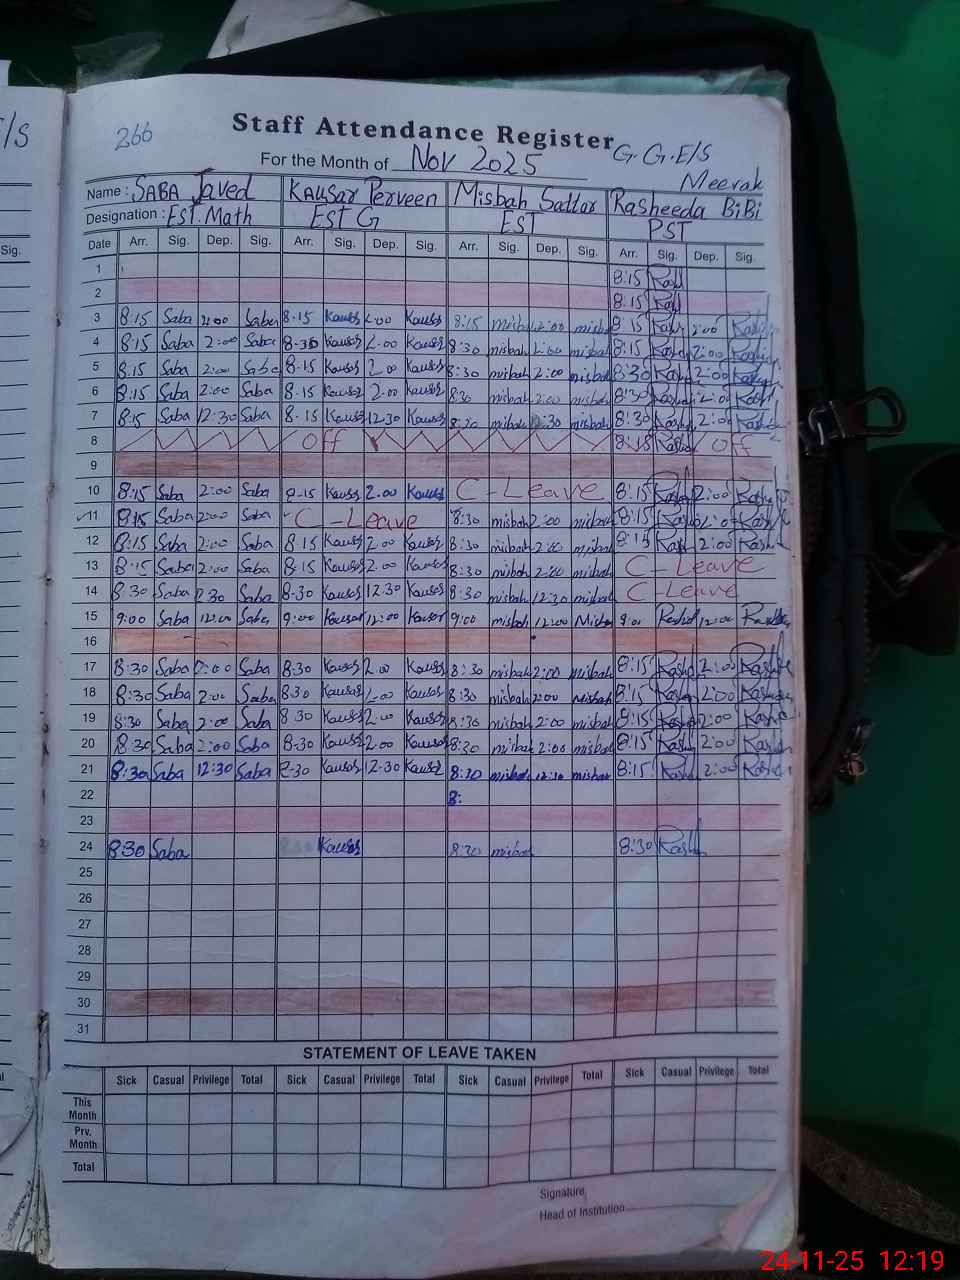 E/S
266
Staff Attendance Register
G.G.E/S
For the Month of Nov 2025
Meerak
Name : SABA Javed Kausar Perveen Misbah Sattar Rasheeda BiBi
Designation : Est. Math EST G EST PST
Sig. Date Arr. Sig. Dep. Sig. Arr. Sig. Dep. Sig. Arr. Sig. Dep. Sig. Arr. Sig. Dep. Sig.
1 8:15
2 8:15
3 8:15 Saba 2:00 Saba 8-15 Kausar 2.00 Kausar 8:15 misbah 2:00 misbah 8:15 2:00
4 8:15 Saba 2:00 Saba 8-30 Kausar 2.00 Kausar 8:30 misbah 2:00 misbah 8:15 2:00
5 8:15 Saba 2:00 Saba 8-15 Kausar 2.00 Kausar 8:30 misbah 2:00 misbah 8:30 2:00
6 8:15 Saba 2:00 Saba 8-15 Kausar 2.00 Kausar 8:30 misbah 2:00 misbah 8:30 2:00
7 8:15 Saba 12:30 Saba 8-15 Kausar 12.30 Kausar 8:30 misbah 12:30 misbah 8:30 2:00
8 Off 8:15 Off
9
10 8:15 Saba 2:00 Saba 8-15 Kausar 2.00 Kausar C-Leave 8:15 2:00
11 8:15 Saba 2:00 Saba C-Leave 8:30 misbah 2:00 misbah 8:15 2:00
12 8:15 Saba 2:00 Saba 8 15 Kausar 2.00 Kausar 8:30 misbah 2:00 misbah 8:15 2:00
13 8:15 Saba 2:00 Saba 8-15 Kausar 2.00 Kausar 8:30 misbah 2:00 misbah C-Leave
14 8:30 Saba 2:30 Saba 8-30 Kausar 12.30 Kausar 8:30 misbah 12:30 misbah C-Leave
15 9:00 Saba 12:00 Saba 9:00 Kausar 12:00 Kausar 9:00 misbah 12:00 9:00 12:00
16
17 8:30 Saba 2:00 Saba 8:30 Kausar 2.00 Kausar 8:30 misbah 2:00 misbah 8:15 2:00
18 8:30 Saba 2:00 Saba 8:30 Kausar 2.00 Kausar 8:30 misbah 2:00 misbah 8:15 2:00
19 8:30 Saba 2:00 Saba 8 30 Kausar 2.00 Kausar 8:30 misbah 2:00 misbah 8:15 2:00
20 8:30 Saba 2:00 Saba 8-30 Kausar 2.00 Kausar 8:30 misbah 2:00 misbah 8:15 2:00
21 8:30 Saba 12:30 Saba 8-30 Kausar 12-30 Kausar 8:30 misbah 12:30 misbah 8:15 2:00
22 8:
23
24 8:30 Saba Kausar 8:30 misbah 8:30
25
26
27
28
29
30
31
STATEMENT OF LEAVE TAKEN
Sick Casual Privilege Total Sick Casual Privilege Total Sick Casual Privilege Total Sick Casual Privilege Total
This Month
Prv. Month
Total
Signature
Head of Institution
24-11-25 12:19